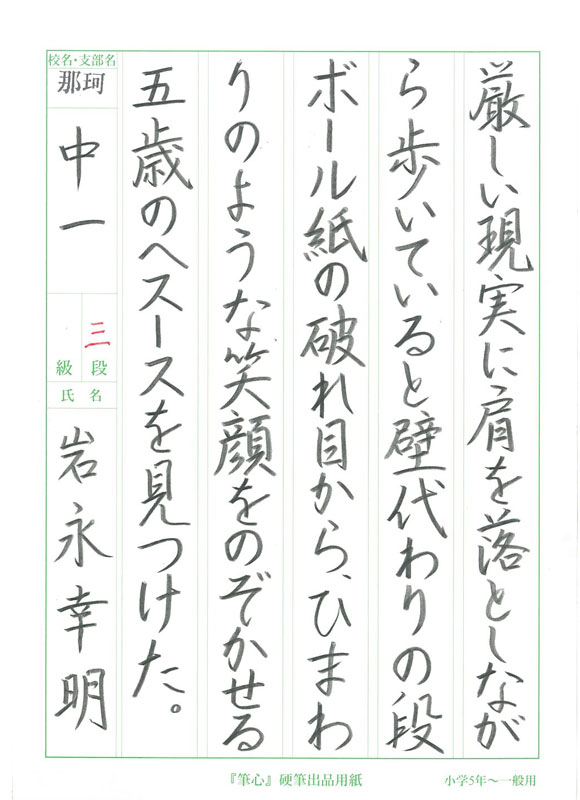 厳しい現実に肩を落としなが
ら歩いていると壁代わりの段
ボール紙の破れ目から、ひまわ
りのような笑顔をのぞかせる
五歳のヘスースを見つけた。
校名・支部名
那珂
中一
三
段
級
氏名
岩永幸明
『筆心』硬筆出品用紙
小学5年〜一般用